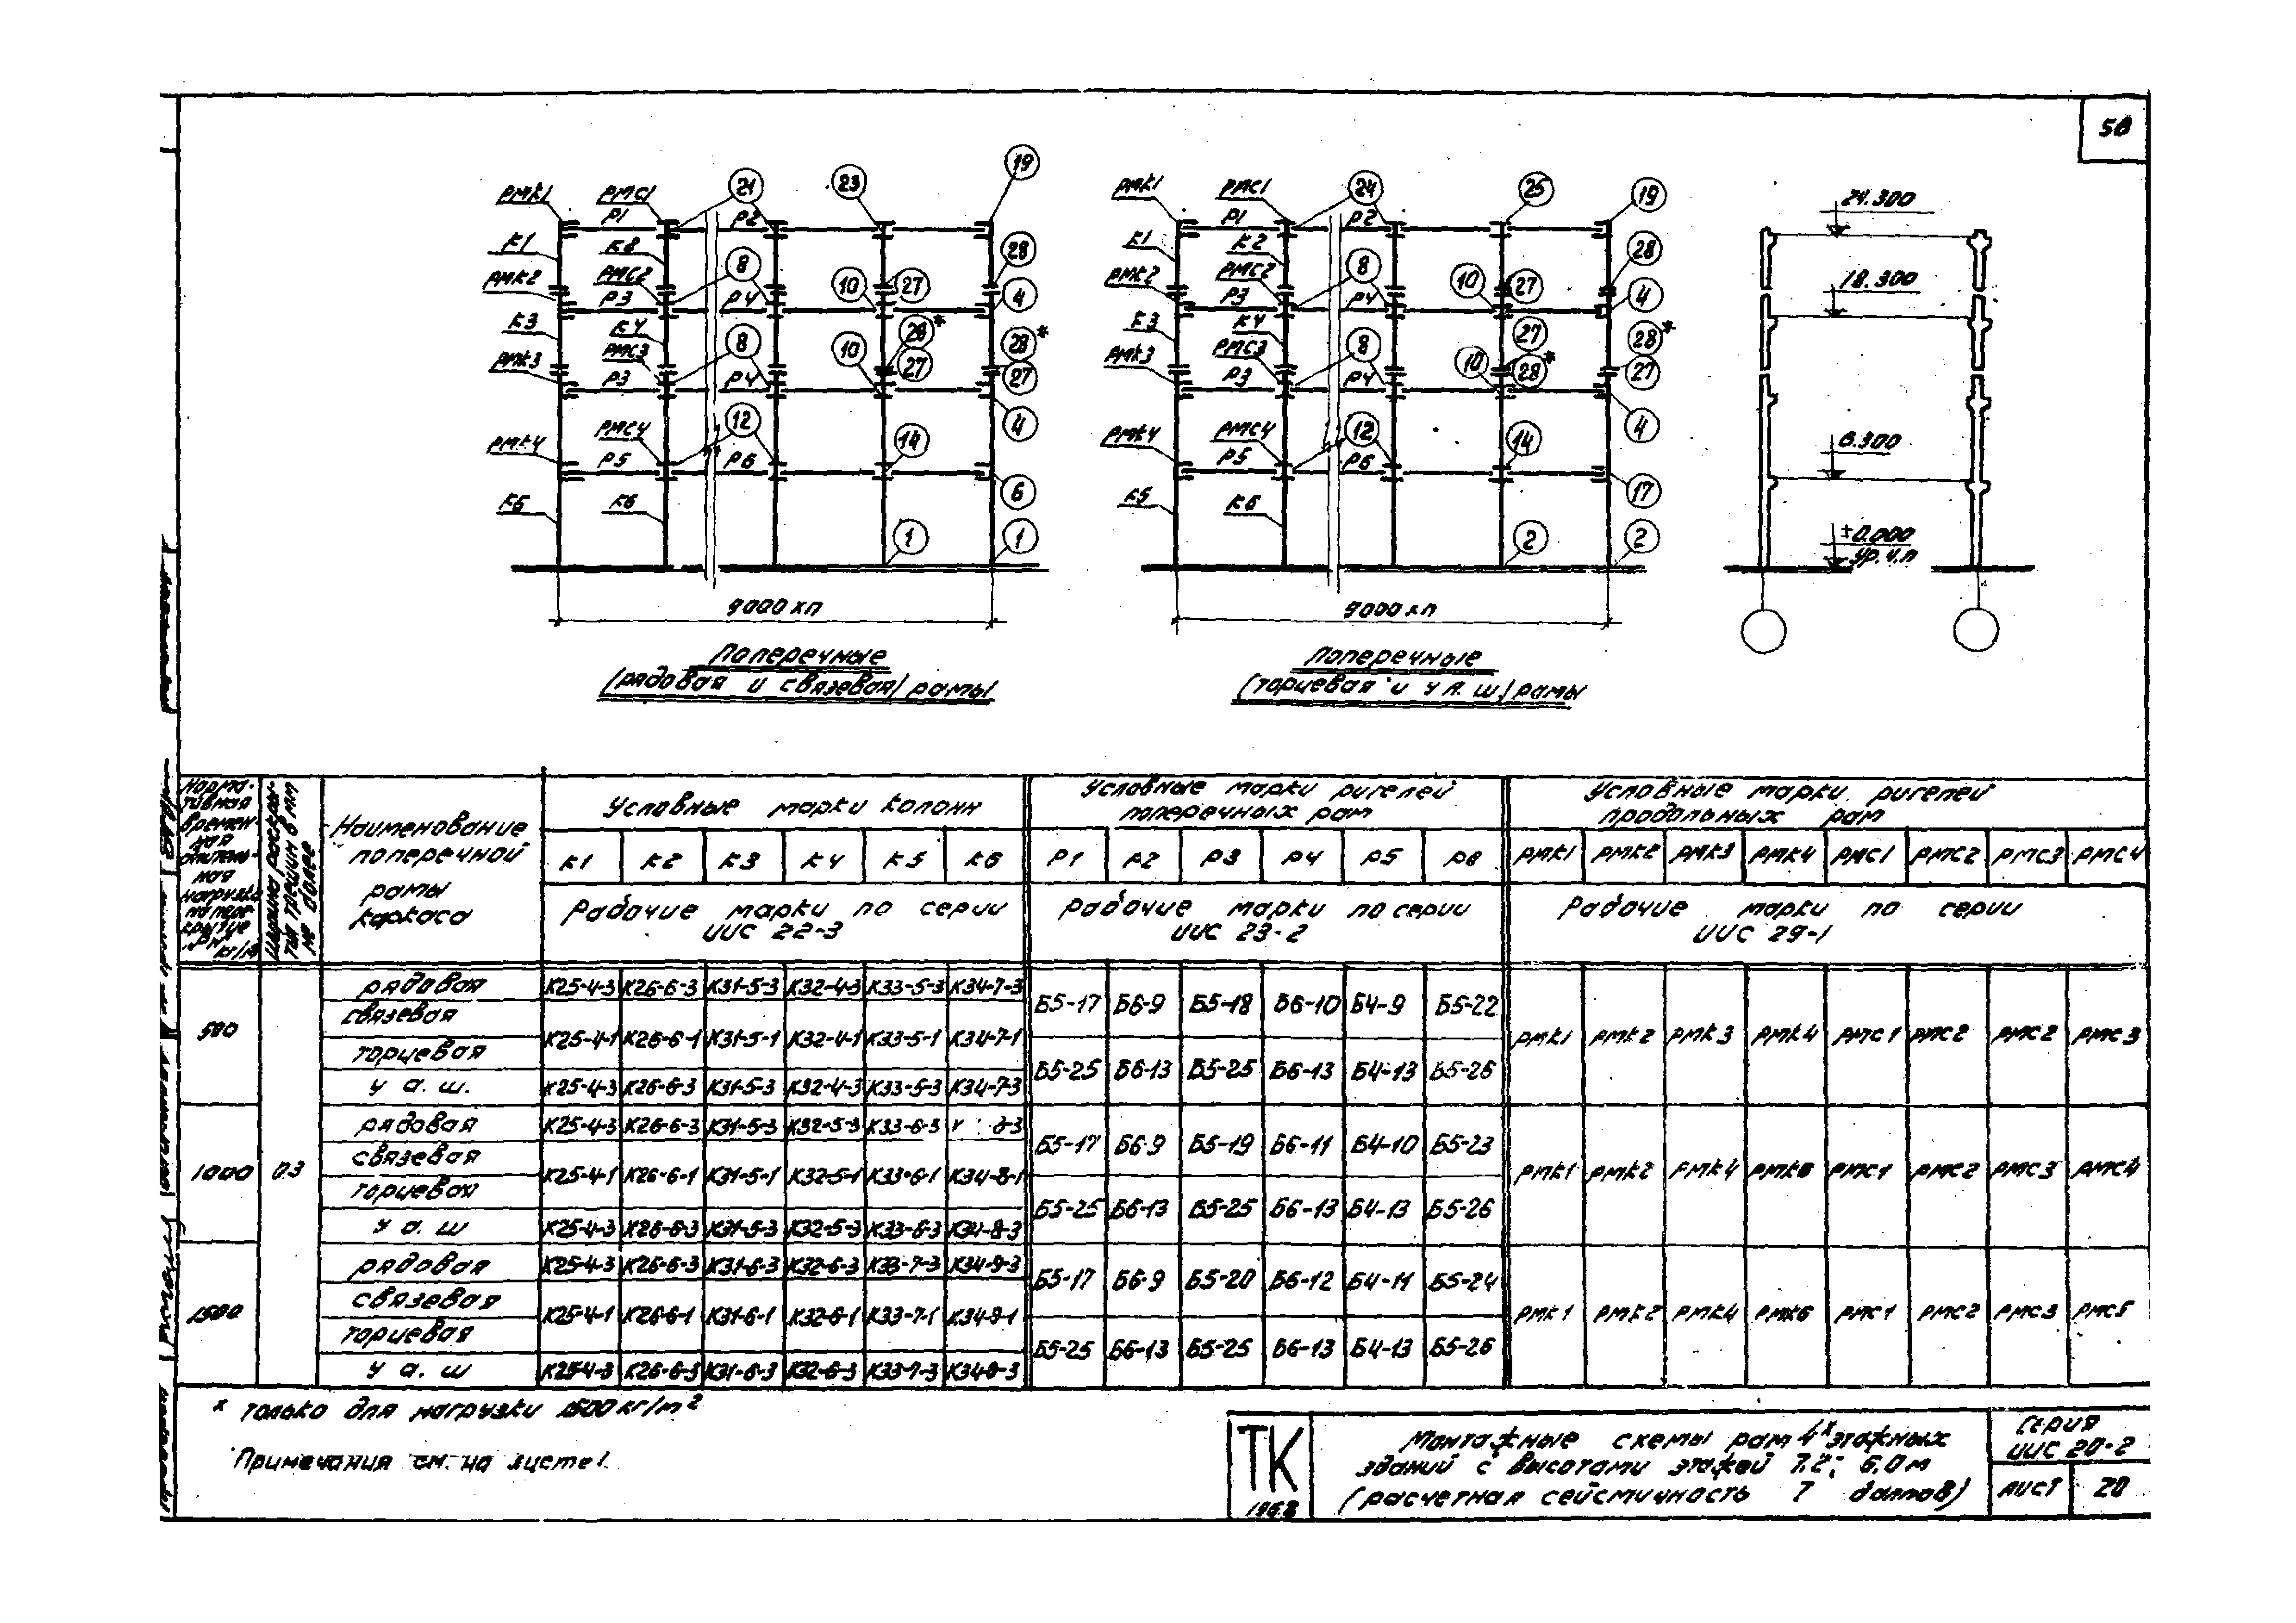 50
РМК1 РМС1 21 23 19
Р1 Р2
К1 К2 28
РМК2 РМС2 8 10 27 4
Р3 Р4
К3 К4 28* 28*
РМК3 РМС3 8 10 27 27
Р3 Р4
РМК4 РМС4 12 14 4
Р5 Р6 6
К5 К6
1 1
9000хп
Поперечные
(рядовая и связевая) рамы
РМК1 РМС1 24 25 19
Р1 Р2
К1 К2 28
РМК2 РМС2 8 10 27 4
Р3 Р4
К3 К4 27 28*
РМК3 РМС3 8 10 28* 27
Р3 Р4
РМК4 РМС4 12 14 4
Р5 Р6 17
К5 К6
2 2
9000хп
Поперечные
(торцевая и у а.ш.) рамы
24.300
18.300
6.300
±0.000
Ур.ч.п
Норма-
тивная
времен-
ная
длитель-
ная
нагрузка
на пере-
крытие
"Рн"
кг/м²
Ширина раскры-
тия трещин в мм
не более
Наименование
поперечной
рамы
каркаса
Условные марки колонн
К1 К2 К3 К4 К5 К6
Рабочие марки по серии
ИИС 22-3
Условные марки ригелей
поперечных рам
Р1 Р2 Р3 Р4 Р5 Р6
Рабочие марки по серии
ИИС 23-2
Условные марки ригелей
продольных рам
РМК1 РМК2 РМК3 РМК4 РМС1 РМС2 РМС3 РМС4
Рабочие марки по серии
ИИС 29-1
500
рядовая К25-4-3 К26-6-3 К31-5-3 К32-4-3 К33-5-3 К34-7-3
связевая
Б5-17 Б6-9 Б5-18 Б6-10 Б4-9 Б5-22
К25-4-1 К26-6-1 К31-5-1 К32-4-1 К33-5-1 К34-7-1
РМК1 РМК2 РМК3 РМК4 РМС1 РМС2 РМС2 РМС3
торцевая
Б5-25 Б6-13 Б5-25 Б6-13 Б4-13 Б5-26
у а.ш. К25-4-3 К26-6-3 К31-5-3 К32-4-3 К33-5-3 К34-7-3
1000 0.3
рядовая К25-4-3 К26-6-3 К31-5-3 К32-5-3 К33-6-3
связевая
Б5-17 Б6-9 Б5-19 Б6-11 Б4-10 Б5-23
К25-4-1 К26-6-1 К31-5-1 К32-5-1 К33-6-1 К34-8-1
РМК1 РМК2 РМК4 РМК6 РМС1 РМС2 РМС3 РМС4
торцевая
Б5-25 Б6-13 Б5-25 Б6-13 Б4-13 Б5-26
у а.ш К25-4-3 К26-6-3 К31-5-3 К32-5-3 К33-6-3 К34-8-3
1500
рядовая К25-4-3 К26-6-3 К31-6-3 К32-6-3 К33-7-3 К34-9-3
связевая
Б5-17 Б6-9 Б5-20 Б6-12 Б4-11 Б5-24
К25-4-1 К26-6-1 К31-6-1 К32-6-1 К33-7-1 К34-9-1
РМК1 РМК2 РМК4 РМК6 РМС1 РМС2 РМС3 РМС5
торцевая
Б5-25 Б6-13 Б5-25 Б6-13 Б4-13 Б5-26
у а.ш К25-4-3 К26-6-3 К31-6-3 К32-6-3 К33-7-3 К34-9-3
* только для нагрузки 1500кг/м²
Примечания см. на листе 1.
ТК
1968
Монтажные схемы рам 4х этажных
зданий с высотами этажей 7.2; 6.0м
(расчетная сейсмичность 7 баллов)
Серия
ИИС 20-2
Лист 20